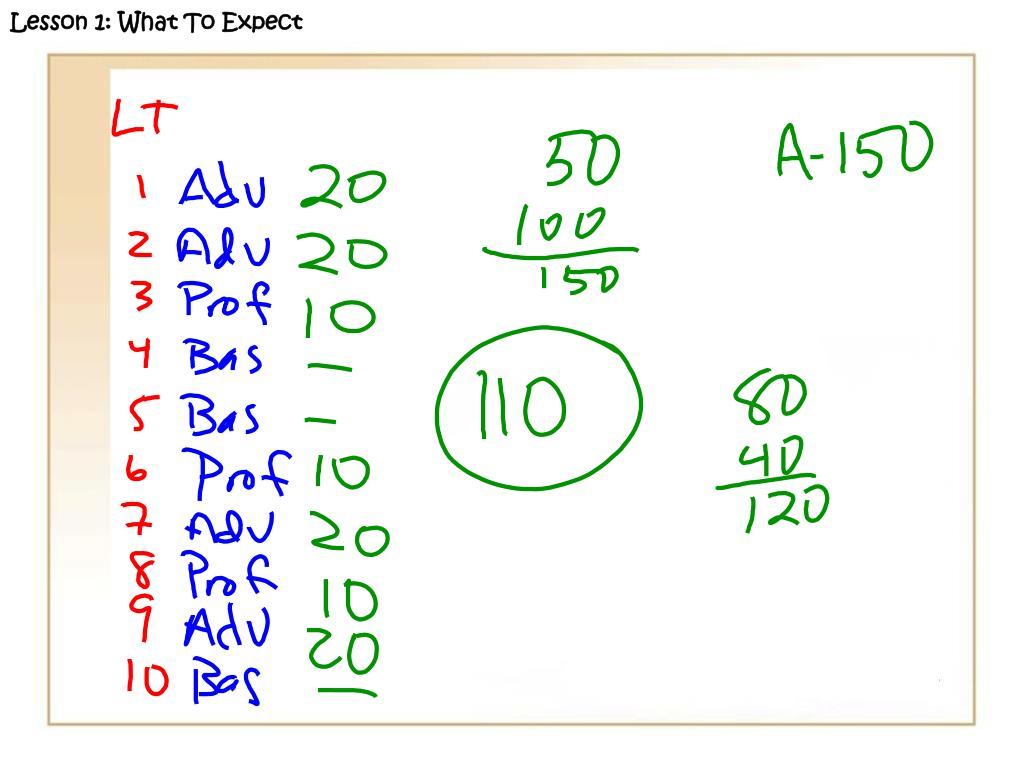 Lesson 1: What To Expect
LT
1 Adv 20
2 Adv 20
3 Prof 10
4 Bas —
5 Bas —
6 Prof 10
7 Adv 20
8 Prof 10
9 Adv 20
10 Bas —
50
100
150
110
A-150
80
40
120